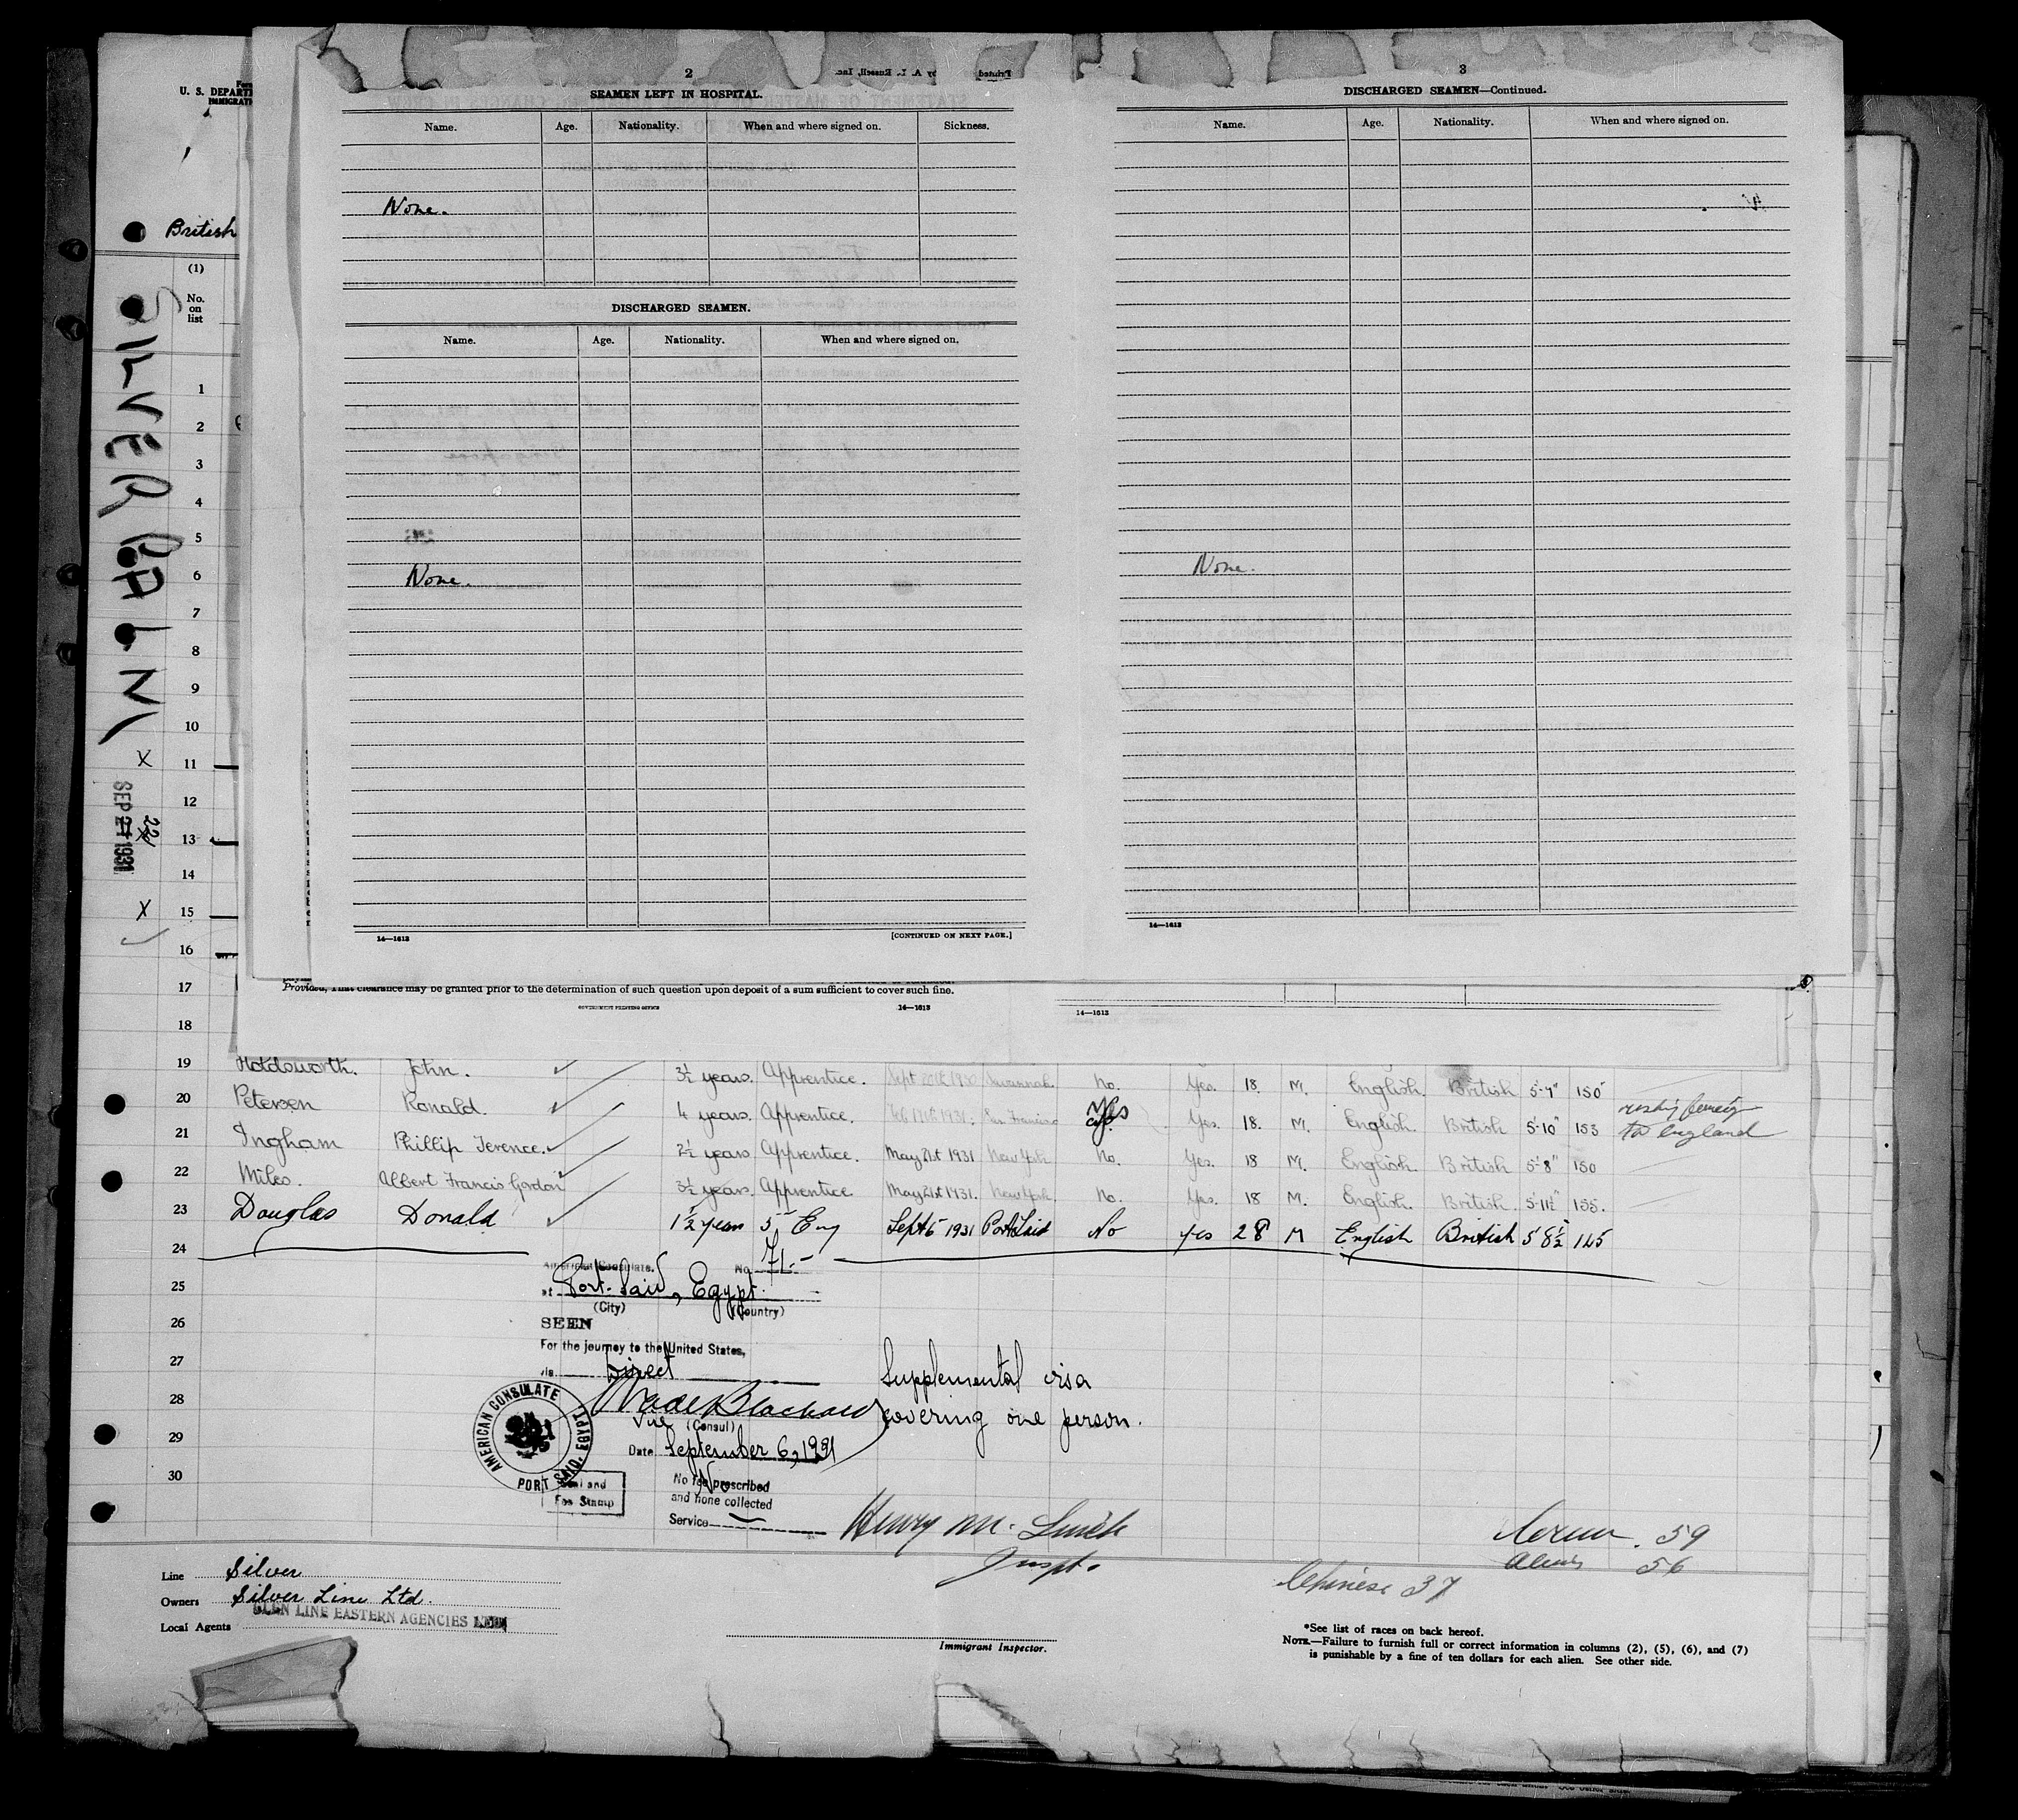 U. S. DEPART
IMMIGRAT
British
(1)
No.
on
list
SILVERPALM
SEP 21 1931
22
1
2
3
4
5
6
7
8
9
10
X 11
12
13
14
X 15
16
17
18
19
20
21
22
23
24
25
26
27
28
29
30
2
Printed by A. I. Russell, Inc.
SEAMEN LEFT IN HOSPITAL.
Name. Age. Nationality. When and where signed on. Sickness.
None.
DISCHARGED SEAMEN.
Name. Age. Nationality. When and where signed on.
None.
14—1613 [CONTINUED ON NEXT PAGE.]
3
DISCHARGED SEAMEN—Continued.
Name. Age. Nationality. When and where signed on.
None.
14—1613
Provided, That clearance may be granted prior to the determination of such question upon deposit of a sum sufficient to cover such fine.
GOVERNMENT PRINTING OFFICE 14—1613
14—1613
Holdsworth. John. 3½ years. Apprentice. Sept 20th 1930 Savannah. No. Yes. 18 M. English. British 5'-7" 150
Petersen Ronald. 4 years. Apprentice. Feb 17th 1931. San Francisco Yes Yes. 18. M. English. British 5'-10" 153
to England
Ingham Phillip Terence. 2½ years Apprentice. May 21st 1931 New York. No. Yes. 18 M. English. British 5'-8" 150
Miles. Albert Francis Gordon 3½ years. Apprentice May 21st 1931. New York. No. Yes. 18 M. English. British. 5'-11½" 155.
Douglas Donald 1½ year 5 Eng Sept 5 1931 Port Said No yes 28 M English British 5'8½ 145
American Consulate. No. 71.-
at Port-Said, Egypt.
(City) (Country)
SEEN
For the journey to the United States,
via Direct
Supplemental visa
covering one person.
Vice (Consul)
AMERICAN CONSULATE
PORT SAID, EGYPT
Date September 6, 1931
Seal and
Fee Stamp
No fee prescribed
and none collected
Service
Henry M. Smith
Inspt.
Crew. 59
Aliens 56
Chinese 37
Line Silver
Owners Silver Line Ltd.
GLEN LINE EASTERN AGENCIES LTD
Local Agents
Immigrant Inspector.
*See list of races on back hereof.
NOTE.—Failure to furnish full or correct information in columns (2), (5), (6), and (7)
is punishable by a fine of ten dollars for each alien. See other side.